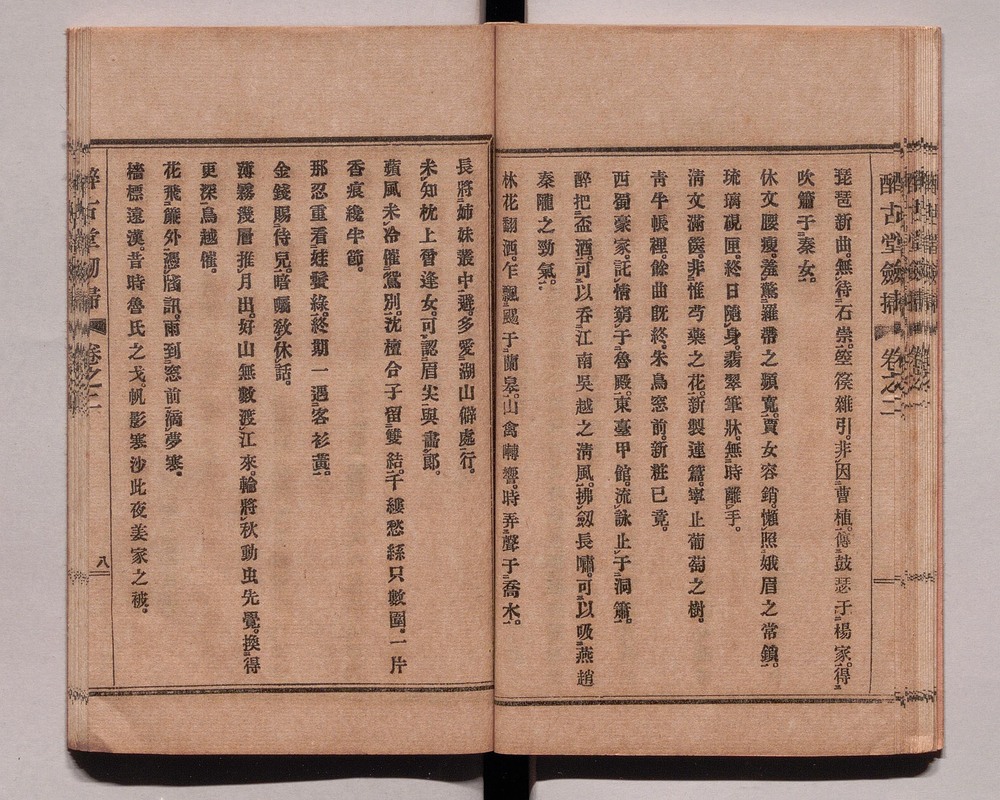 醉古堂劔掃　卷之二
琵琶新曲。無待石崇。箜篌雜引。非因曹植。傳鼓瑟于楊家。得
吹簫于秦女。
休文腰瘦。羞驚羅帶之頻寬。賈女容銷。懶照娥眉之常鎖。
琉璃硯匣。終日隨身。翡翠筆牀。無時離手。
清文滿篋。非惟芍藥之花。新製連篇。寧止葡萄之樹。
靑牛帳裡。餘曲既終。朱鳥窓前。新粧已竟。
西蜀豪家。託情窮于魯殿。東臺甲館。流詠止于洞簫。
醉把盃酒。可以吞江南吳越之淸風。拂劔長嘯。可以吸燕趙
秦隴之勁氣。
林花翻洒。乍飄颺于蘭皋。山禽囀響。時弄聲于喬木。
長將姉妹叢中避。多愛湖山僻處行。
未知枕上曾逢女。可認眉尖與畵郞。
蘋風未冷催鴛別。沈檀合子留雙結。千縷愁絲只數圍。一片
香痕纔半節。
那忍重看娃鬢綠。終期一遇客衫黃。
金錢賜侍兒。暗囑敎休話。
薄霧幾層推月出。好山無數渡江來。輪將秋動虫先覺。換得
更深鳥越催。
花飛簾外凴牋訊。雨到窓前滴夢寒。
檣標遠漢。昔時魯氏之戈。帆影寒沙。此夜姜家之被。
醉古堂劔掃　卷之二　八